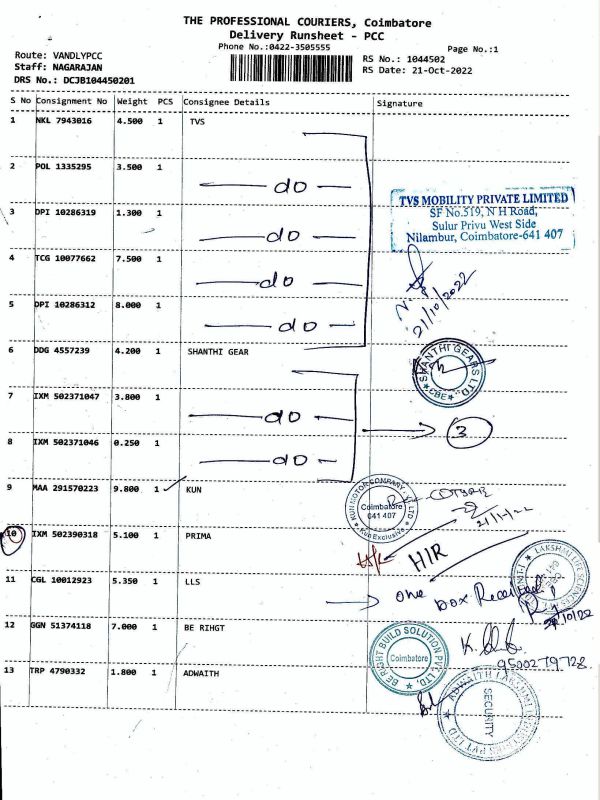 THE PROFESSIONAL COURIERS, Coimbatore
Delivery Runsheet - PCC
Phone No.:0422-3505555
Page No.:1
Route: VANDLYPCC
Staff: NAGARAJAN
DRS No.: DCJB104450201
RS No.: 1044502
RS Date: 21-Oct-2022
S No Consignment No Weight PCS Consignee Details Signature
1 NKL 7943016 4.500 1 TVS
2 POL 1335295 3.500 1
do
3 DPI 10286319 1.300 1
do
4 TCG 10077662 7.500 1
do
5 DPI 10286312 8.000 1
do
TVS MOBILITY PRIVATE LIMITED
SF No.519, N H Road,
Sulur Privu West Side
Nilambur, Coimbatore-641 407
21/10/2022
6 DDG 4557239 4.200 1 SHANTHI GEAR
SHANTHI GEARS LTD.,
CBE
7 IXM 502371047 3.800 1
do
3
8 IXM 502371046 0.250 1
do
9 MAA 291570223 9.800 1 KUN
KUN MOTOR COMPANY P LTD
Coimbatore
641 407
Kun Exclusive
10 IXM 502390318 5.100 1 PRIMA
H/R
11 CGL 10012923 5.350 1 LLS
one
box Received
LAKSHMI LIFE SCIENCES
UNIT-I
12 GGN 51374118 7.000 1 BE RIHGT
BE RIGHT BUILD SOLUTION PVT. LTD.
Coimbatore
9500279728
13 TRP 4790332 1.800 1 ADWAITH
ADWAITH LAKSHMI INDUSTRIES PVT LTD
SECURITY